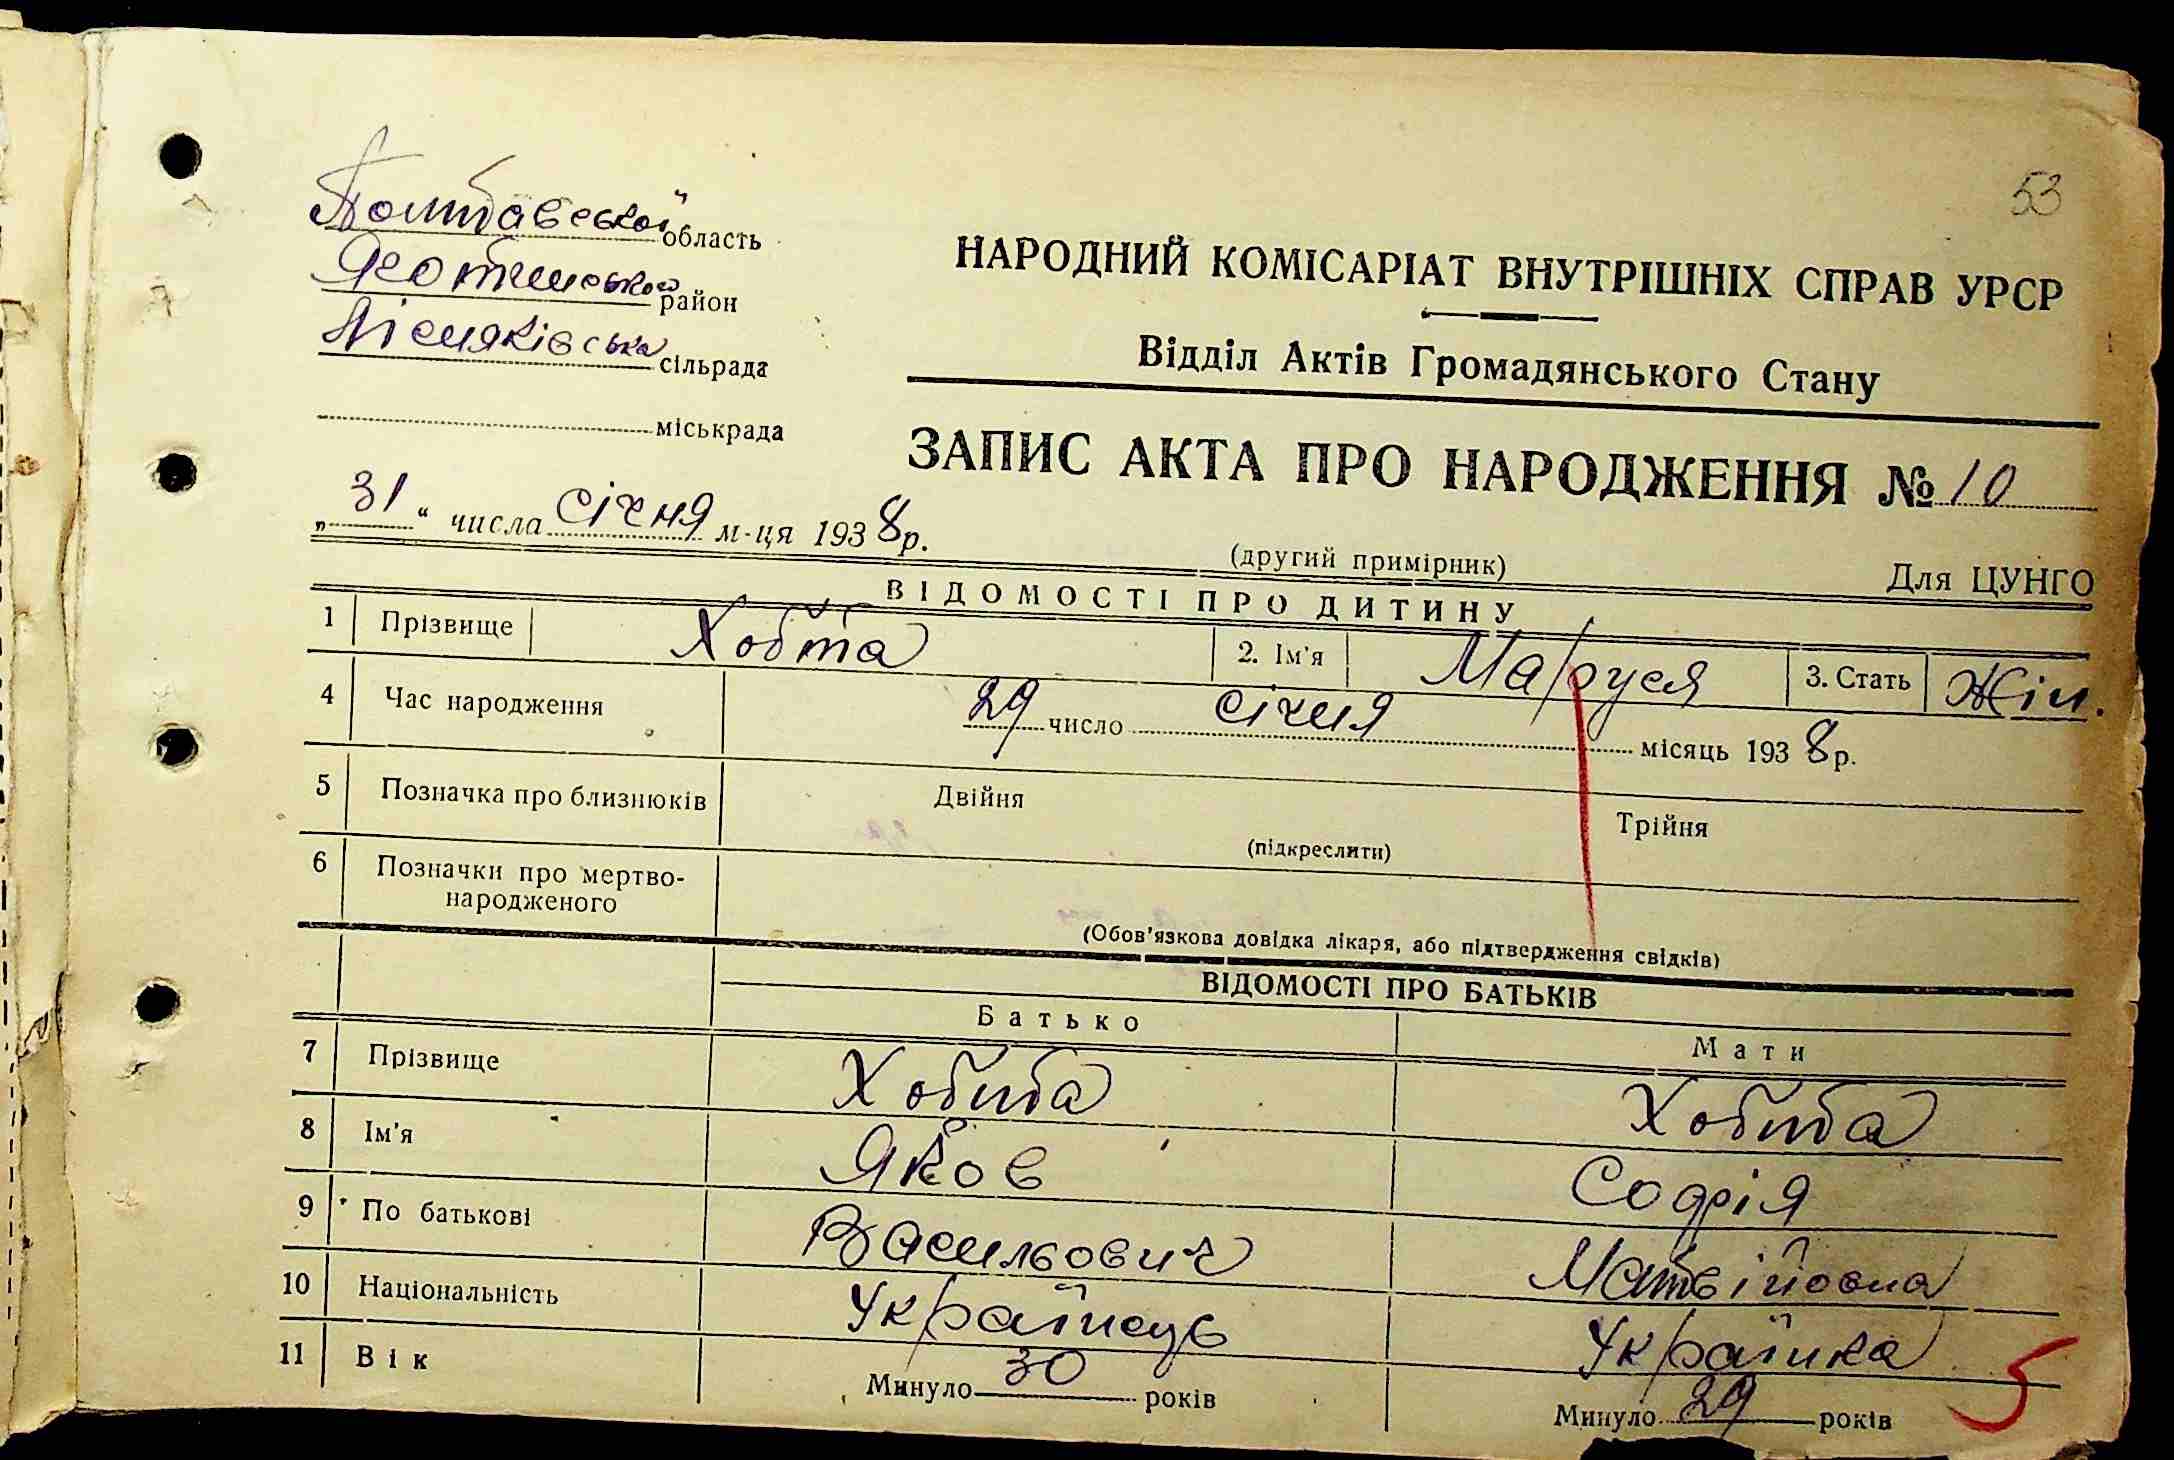 53
Полтавської область
Яготинського район
Лісняківська сільрада
міськрада
НАРОДНИЙ КОМІСАРІАТ ВНУТРІШНІХ СПРАВ УРСР
Відділ Актів Громадянського Стану
ЗАПИС АКТА ПРО НАРОДЖЕННЯ № 10
„31“ числа січня м-ця 1938 р.
(другий примірник) Для ЦУНГО
ВІДОМОСТІ ПРО ДИТИНУ
1 Прізвище Хобта 2. Ім'я Маруся 3. Стать Жін.
4 Час народження 29 число січня місяць 1938 р.
5 Позначка про близнюків Двійня Трійня
(підкреслити)
6 Позначки про мертво-
народженого
(Обов'язкова довідка лікаря, або підтвердження свідків)
ВІДОМОСТІ ПРО БАТЬКІВ
Батько Мати
7 Прізвище Хобта Хобта
8 Ім'я Яков Софія
9 По батькові Васильович Матвійовна
10 Національність Українець Українка
11 Вік Минуло 30 років Минуло 29 років
5